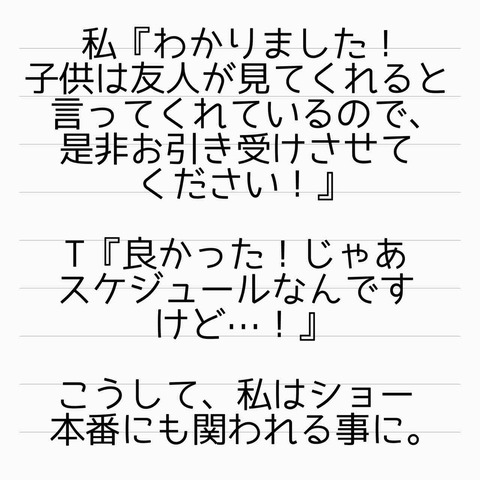 私『わかりました！
子供は友人が見てくれると
言ってくれているので、
是非お引き受けさせて
ください！』
T『良かった！じゃあ
スケジュールなんです
けど…！』
こうして、私はショー
本番にも関われる事に。